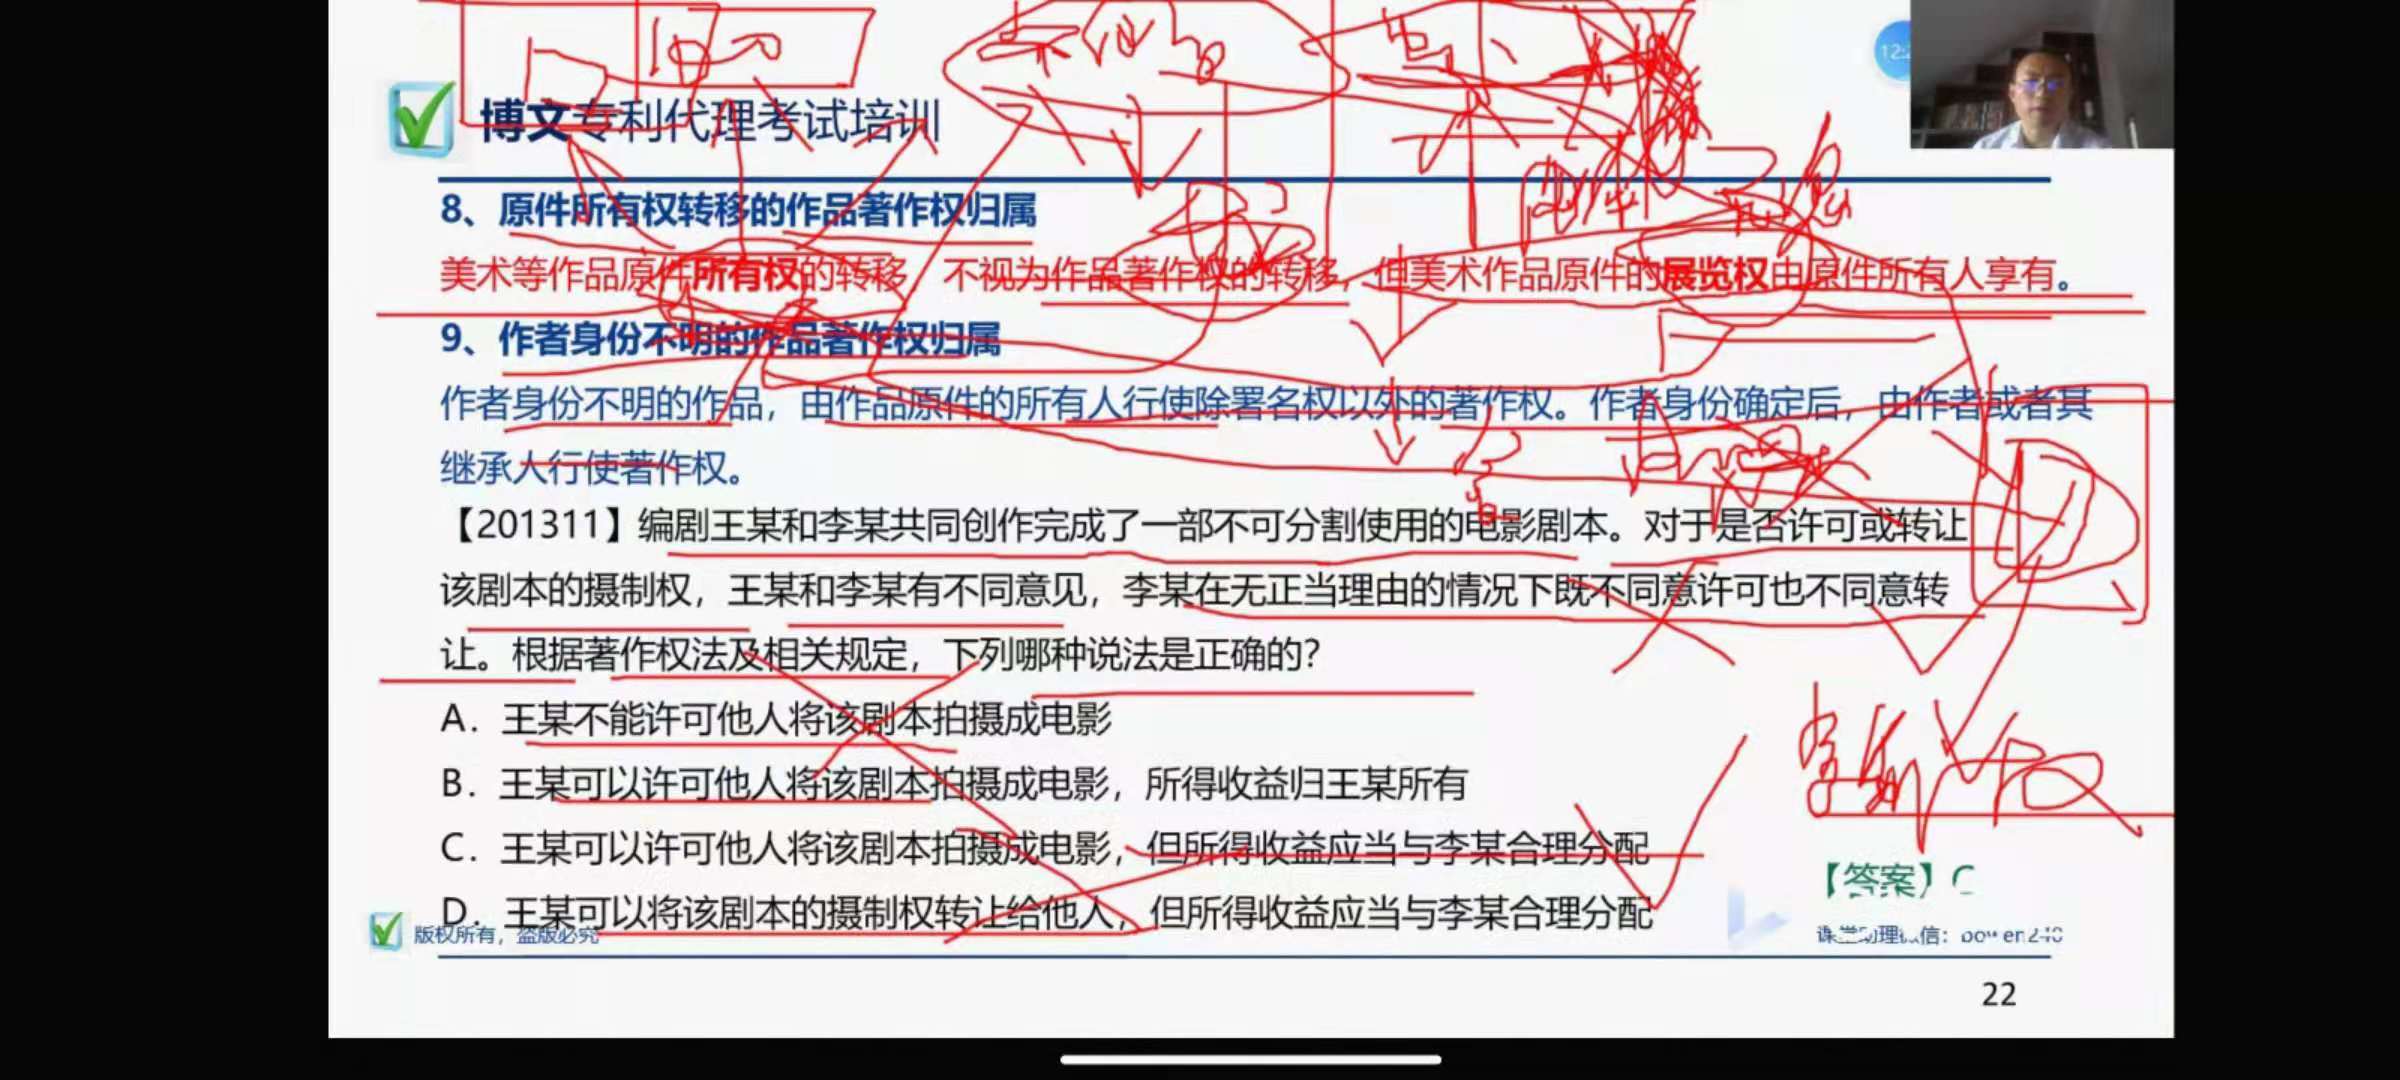 博文专利代理考试培训
8、原件所有权转移的作品著作权归属
美术等作品原件所有权的转移，不视为作品著作权的转移，但美术作品原件的展览权由原件所有人享有。
9、作者身份不明的作品著作权归属
作者身份不明的作品，由作品原件的所有人行使除署名权以外的著作权。作者身份确定后，由作者或者其
继承人行使著作权。
【201311】编剧王某和李某共同创作完成了一部不可分割使用的电影剧本。对于是否许可或转让
该剧本的摄制权，王某和李某有不同意见，李某在无正当理由的情况下既不同意许可也不同意转
让。根据著作权法及相关规定，下列哪种说法是正确的？
A．王某不能许可他人将该剧本拍摄成电影
B．王某可以许可他人将该剧本拍摄成电影，所得收益归王某所有
C．王某可以许可他人将该剧本拍摄成电影，但所得收益应当与李某合理分配
D．王某可以将该剧本的摄制权转让给他人，但所得收益应当与李某合理分配
【答案】C
版权所有，盗版必究
22